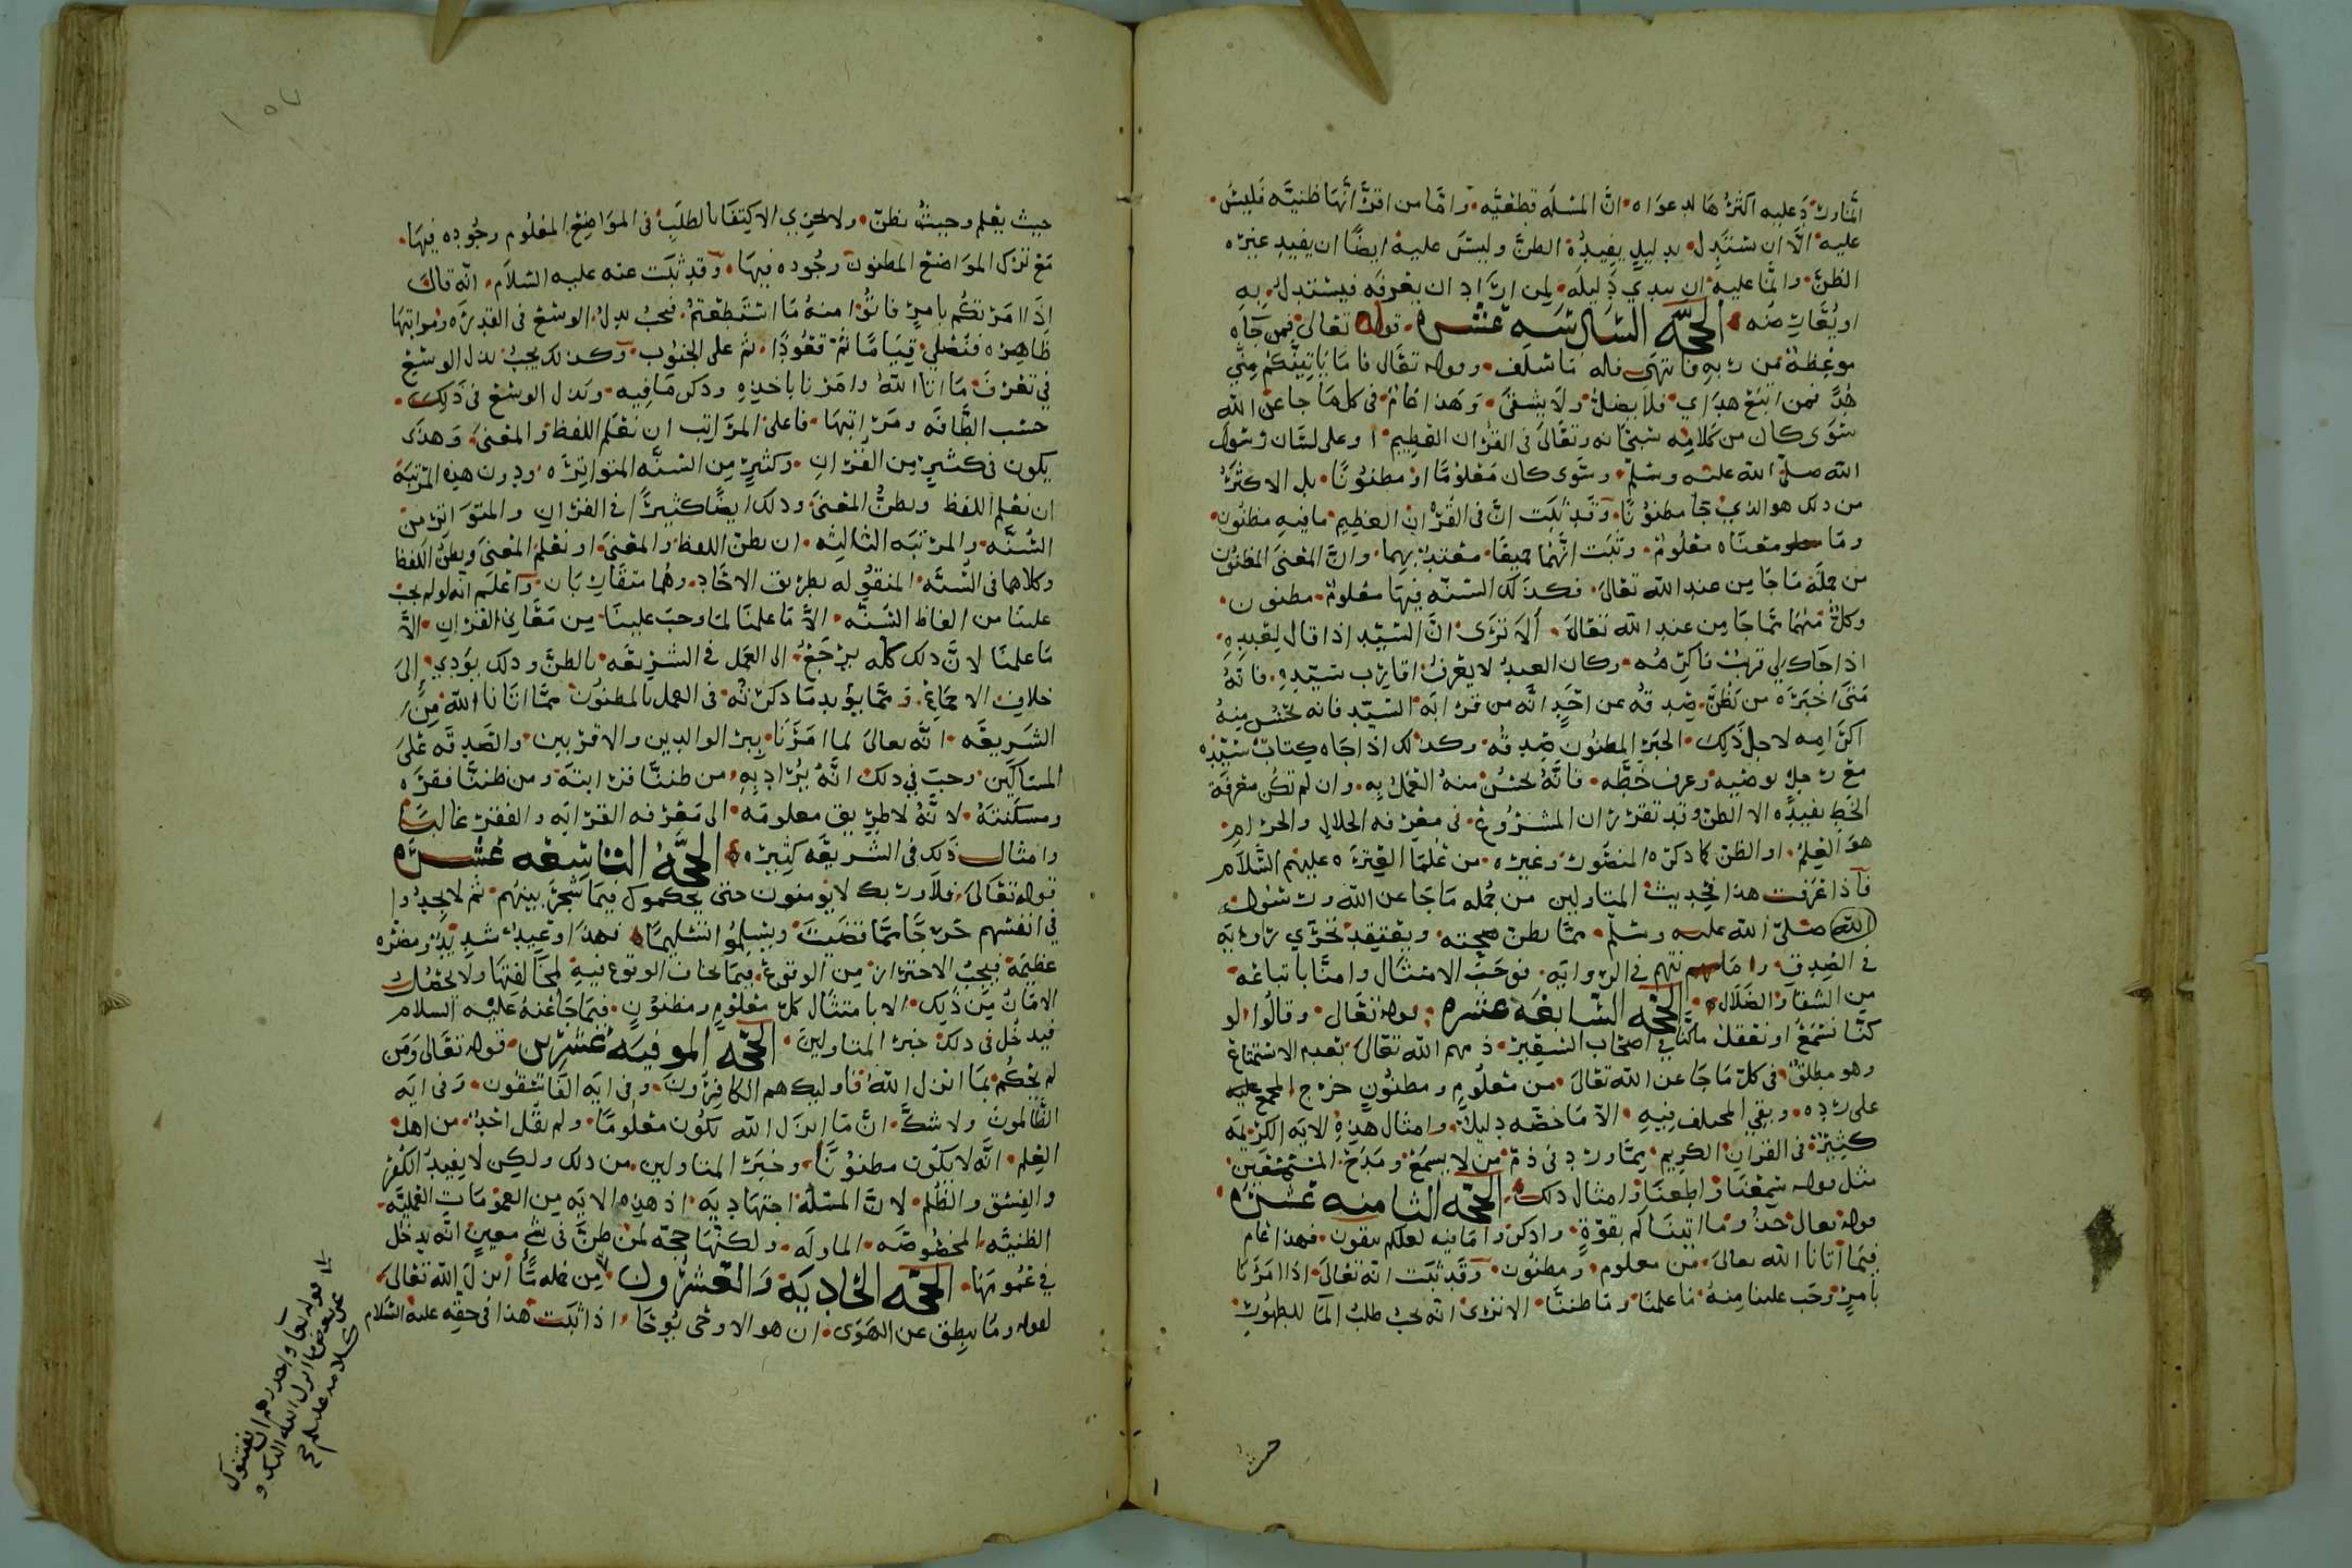 المنازد عليه اكثرها لدعواه ان المسله قطعيه واما من اقر انها ظنيه فليس
عليه الا ان يستدل بدليل يفيده الظن وليس عليه ايضا ان يفيد غيره
الظن وانما عليه ان يبدي دليله لمن اراد ان يعرفه فيستدل به
او يعارضه الحجه السادسه عشره قوله تعالى فمن جاه
موعظة من ربه فانتهى فله ما سلف وقوله تعالى فاما ياتينكم مني
هدًى فمن اتبع هداي فلا يضل ولا يشقى وهذا عام في كل ما جا عن الله
سوى كان من كلامه سبحانه وتعالى في القران العظيم او على لسان رسول
الله صلى الله عليه وسلم وسوى كان معلومًا او مظنونًا بل الاكثر
من ذلك هو الذي جا مظنونًا وقد ثبت ان في القران العظيم ما فيه مظنون
وما معناه معلوم وثبت انهما جميعًا متعبد بهما وان المعنى المظنون
من جملة ما جا من عند الله تعالى فكذلك السنه فيها معلوم ومظنون
وكل منهما مما جا من عند الله تعالى الا ترى ان السيد اذا قال لعبده
اذا جاك لي قريب فاكرمه وكان العبد لا يعرف اقارب سيده فانه
متى اخبره من يظن صدقه عن احد انه من قرابه السيد فانه يحسن منه
اكرامه لاجل ذلك الخبر المظنون صدقه وكذلك اذا جاه كتاب سيده
مع رجل يوصيه وعرف خطه فانه يحسن منه العمل به وان لم تكن معرفة
الخط تفيده الا الظن وقد تقرر ان المشروع في معرفه الحلال والحرام
هو العلم او الظن كما ذكره المنصور وغيره من علما العتره عليهم السلام
فاذا عرفت هذا فحديث المتاولين من جمله ما جا عن الله ورسول
الله صلى الله عليه وسلم مما يظن صحته ويعتقد تحري راويه
في الصدق وامانتهم في الروايه فوجب الامتثال وامنا باتباعه
من الشقا والضلال الحجه السابعه عشره قوله تعالى وقالوا لو
كنا نسمع او نعقل ما كنا في اصحاب السعير ذمهم الله تعالى بعدم الاستماع
وهو مطلق في كل ما جا عن الله تعالى من معلوم ومظنون خرج المجمع عليه
على رده وبقي المختلف فيه الا ما خصه دليل وامثال هذه الايه الكريمه
كثيرة في القران الكريم مما ورد في ذم من لا يسمع ومدح المستمعين
مثل قوله سمعنا واطعنا وامثال ذلك الحجه الثامنه عشره
قوله تعالى خذوا ما اتيناكم بقوة واذكروا ما فيه لعلكم تتقون فهذا عام
فيما اتانا الله تعالى من معلوم ومظنون وقد ثبت انه تعالى اذا امرنا
بامر وجب علينا منه ما علمنا وما ظننا الا ترى انه يجب طلب الما للطهور
حيث
حيث يعلم وحيث يظن ولا يجزي الاكتفا بالطلب في المواضع المعلوم وجوده فيها
مع ترك المواضع المظنون وجوده فيها وقد ثبت عنه عليه السلام انه قال
اذا امرتكم بامر فاتوا منه ما استطعتم فيجب بذل الوسع في القدره ومراتبها
ظاهره فنصلي قيامًا ثم قعودًا ثم على الجنوب وكذلك يجب بذل الوسع
في تعرف ما اتانا الله وامرنا باخذه وذكر ما فيه ونبذل الوسع في ذلك
حسب الطاقه ومراتبها فاعلى المراتب ان نعلم اللفظ والمعنى وهذا
يكون في كثير من القران وكثير من السنه المتواتره ودون هذه المرتبه
ان نعلم اللفظ ونظن المعنى وذلك ايضًا كثيرًا في القران والمتواتر من
السنه والمرتبه الثالثه ان نظن اللفظ والمعنى او نعلم المعنى ونظن اللفظ
وكلاهما في السنه المنقوله بطريق الاحاد وهما متقاربان واعلم انه لو لم يجب
علينا من الفاظ السنه الا ما علمنا لما وجب علينا من معاني القران الا
ما علمنا لان ذلك كله يرجع الى العمل في الشريعه بالظن وذلك يؤدي الى
خلاف الاجماع ومما يؤيد ما ذكرته في العمل بالمظنون مما اتانا الله من
الشريعه انه تعالى لما امرنا ببر الوالدين والاقربين والصدقه على
المساكين وجب في ذلك انه يراد به من ظننا قرابته ومن ظننا فقره
ومسكنته لانه لا طريق معلومه الى معرفه القرابه والفقر غالبًا
وامثال ذلك في الشريعه كثيره الحجه التاسعه عشره
قوله تعالى فلا وربك لا يؤمنون حتى يحكموك فيما شجر بينهم ثم لا يجدوا
في انفسهم حرجًا مما قضيت ويسلموا تسليمًا فهذا وعيد شديد ومضره
عظيمة فيجب الاحتراز من الوقوع فيما يخاف الوقوع فيه لمخالفتها ولا يحصل
الامان من ذلك الا بامتثال كل معلوم ومظنون فيما جا عنه عليه السلام
فيدخل في ذلك خبر المتاولين الحجه الموفيه عشرين قوله تعالى ومن
لم يحكم بما انزل الله فاوليك هم الكافرون وفي ايه الفاسقون وفي ايه
الظالمون ولا شك ان ما انزل الله يكون معلومًا ولم يقل احد من اهل
العلم انه لا يكون مظنونًا وخبر المتاولين من ذلك ولكن لا يفيد الكفر
والفسق والظلم لان المسله اجتهاديه اذ هذه الايه من العمومات العمليه
الظنيه المخصوصه الماوله ولكنها حجه لمن ظن في شي معين انه يدخل
في عمومها الحجه الحاديه والعشرون من جمله ما انزل الله تعالى
لقوله وما ينطق عن الهوى ان هو الا وحي يوحا اذا ثبت هذا في حقه عليه السلام
قوله تعالى واحذرهم ان يفتنوك
عن بعض ما انزل الله اليك و
كلامه عليه السلام